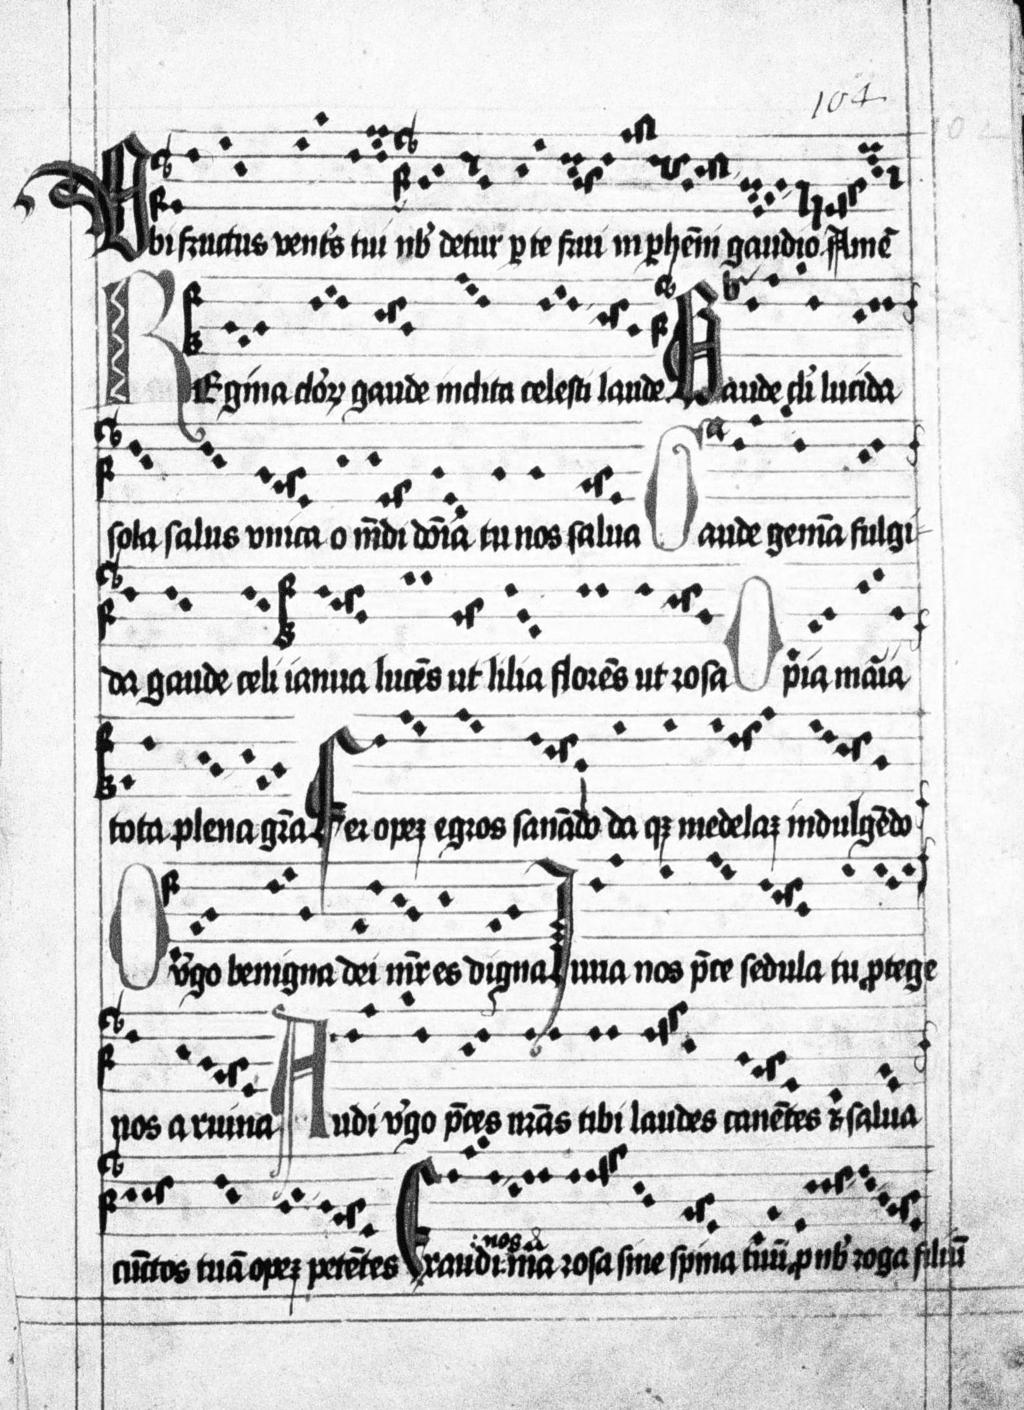 104
Ubi fructus ventˀs tui nbˀ detur p te frui in phēni gaudio. Amē
REgina cloꝝ gaude inclita celesti laude. Gaude cli lucida
sola salus vnica o m̄di dōia tu nos salua Gaude gem̄a fulgi-
da gaude celi ianua lucēs ut lilia florēs ut rosa O pia maīa
tota plena gr̄a Fer opeꝫ egros sanādo da qꝫ medelaꝫ indulgēdo
O vˀgo benigna dei mr̄ es digna Iuua nos p̄ce sedula tu ꝓtege
nos a ruina Audi vˀgo p̄ces nrās tibi laudes canētes ⁊ salua
cūctos tuā opeꝫ petētes Exaudi nos o mīa rosa sine spina tuū ꝓ nbˀ roga filiū